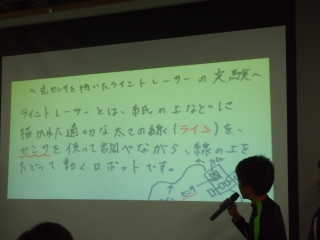 ～光センサを用いたライントレーサーの実験～
ライントレーサーとは、紙の上などに
描かれた適切な太さの線(ライン)を、
センサを使って調べながら、線の上を
たどって動くロボットです。